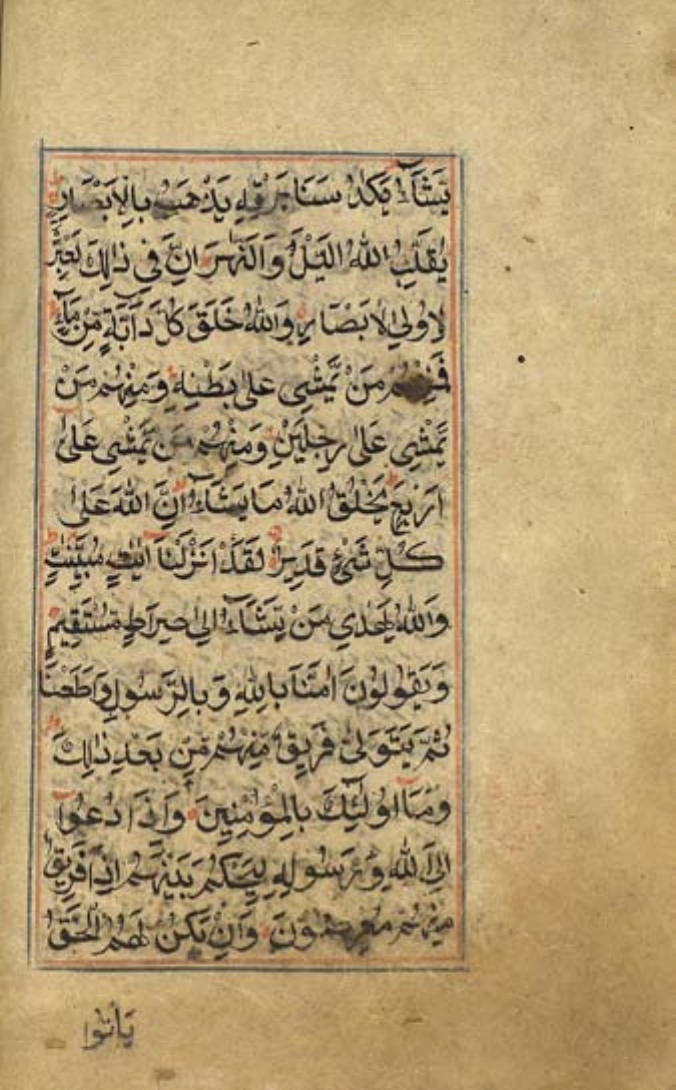 يَشَآءُ يَكَادُ سَنَا بَرْقِهٖ يَذْهَبُ بِالْاَبْصَارِ
يُقَلِّبُ اللّٰهُ الَّيْلَ وَالنَّهَارَ اِنَّ فِي ذٰلِكَ لَعِبْرَةً
لِاُولِي الْاَبْصَارِ وَاللّٰهُ خَلَقَ كُلَّ دَآبَّةٍ مِّنْ مَّآءٍ
فَمِنْهُمْ مَنْ يَّمْشِى عَلٰى بَطْنِهٖ وَمِنْهُمْ مَنْ
يَّمْشِى عَلٰى رِجْلَيْنِ وَمِنْهُمْ مَنْ يَّمْشِى عَلٰى
اَرْبَعٍ يَخْلُقُ اللّٰهُ مَا يَشَآءُ اِنَّ اللّٰهَ عَلٰى
كُلِّ شَىْءٍ قَدِيْرٌ لَقَدْ اَنْزَلْنَا اٰيٰتٍ مُبَيِّنٰتٍ
وَاللّٰهُ يَهْدِي مَنْ يَّشَآءُ اِلٰى صِرَاطٍ مُّسْتَقِيْمٍ
وَيَقُوْلُوْنَ اٰمَنَّا بِاللّٰهِ وَبِالرَّسُوْلِ وَاَطَعْنَا
ثُمَّ يَتَوَلّٰى فَرِيْقٌ مِّنْهُمْ مِّنْ بَعْدِ ذٰلِكَ
وَمَا اُولٰٓئِكَ بِالْمُؤْمِنِيْنَ وَاِذَا دُعُوْا
اِلَى اللّٰهِ وَرَسُوْلِهٖ لِيَحْكُمَ بَيْنَهُمْ اِذَا فَرِيْقٌ
مِنْهُمْ مُعْرِضُوْنَ وَاِنْ يَكُنْ لَهُمُ الْحَقُّ
يَاْتُوْا